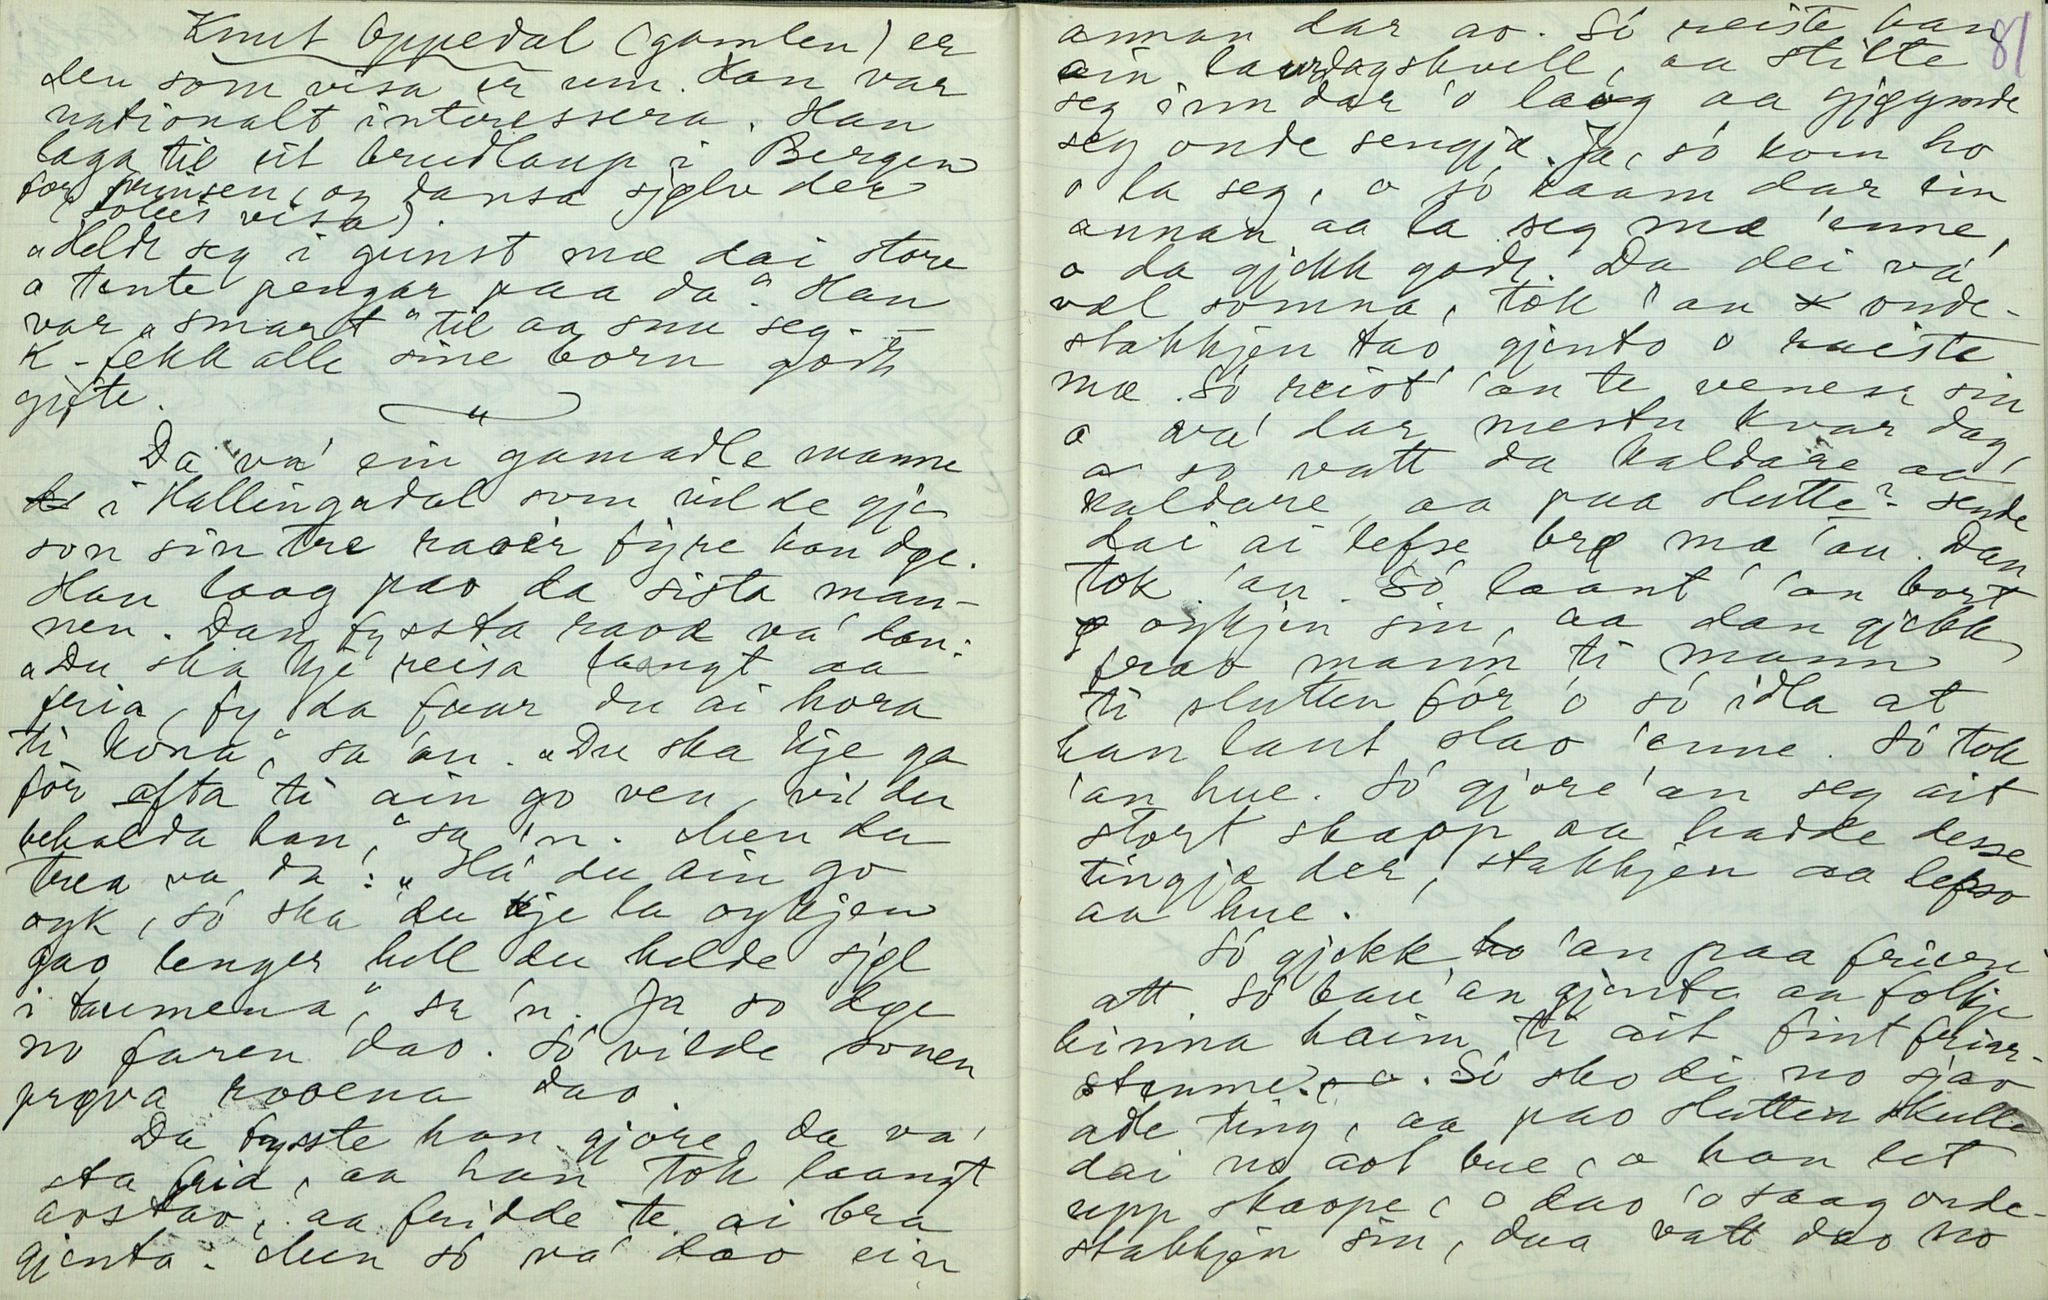 Knut Oppedal (gamlen) er
den som visa er um. Han var
nationalt interessera. Han
laga til eit brudlaup i Bergen
for prinsen, og dansa sjølv der
(      visa).
"Heldt seg i gunst mæ dai store
o tente pengar paa da". Han
var "smart" til aa snu seg. –
K – fekk alle sine born godt
gifte.
"
Da va' ein gamadle manne
i Hallingadal som vilde gje
son sin tre raoer fyre han døe.
Han laag pao da sista man-
nen. Dan fyssta raoe va' dan:
"Du ska kje reisa langt aa
fria, fy da faar du ai hora
ti kona", sa 'an. "Du ska kje ga
for ofta ti ain go ven, vi' du
behalda han," sa 'n. Men da
trea va da: "Ha' du ain go
øyk, so' ska du kje la øykjen
gao lenger hell du helde sjøl
i taumena", sa 'n. Ja so døe
no faren dao. So' vilde sonen
prøva raoena dao.
Da fysste han gjore, da va'
sta fria, aa han tok laangt
aostao, aa fridde te ai bra
gjenta. Men so' va' dao ein
81
annan dar ao. So' reiste han
ain laurdagskvell, aa stilte
seg inn dar 'o laag aa gjøymde
seg onde sengjæ. Ja, so' kom ho
o la seg, o so' kaam dar ein
annan aa la seg mæ 'enne,
o da gjekk godt. Da dei va'
vel somna, tok 'an onde-
stakkjen tao gjento o raiste
mæ. So' reist' 'an te venen sin
o va' dar mestu kvar dag,
o so vatt da kaldare aa
kaldare, aa paa slutte' sende
dai ai lefse brø mæ 'an. Dan
tok 'an. So' laant' 'an bort
øykjen sin, aa dan gjekk
frao mann ti mann
ti slutten for 'o so' idla at
han laut slao 'enne. So' tok
'an hue. So' gjore 'an seg ait
stort skaop aa hadde desse
tingjæ der, stakkjen aa lefso
aa hue.
So' gjekk 'an paa friern
att. So' bau 'an gjenta aa folkje
hinna haim ti ait fint friar-
stemne. So' sko di no sjao
ade ting, aa pao slutten skulle
dai no aot bue, o han let
upp skaope, o dao 'o saag onde-
stakkjen sin, daa vatt dao no